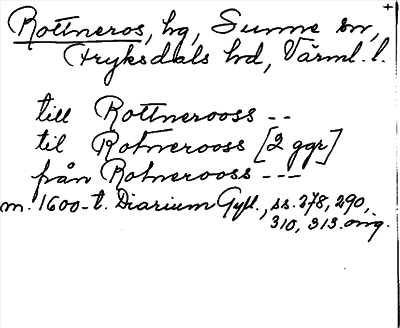 Rottneros, hg, Sunne sn,
Fryksdals hd, Värml. l.
till Rottnerooss --
til Rotnerooss [2 ggr]
från Rotnerooss ---
m. 1600-t. Diarium Gyll., ss. 278, 290,
310, 313. orig.